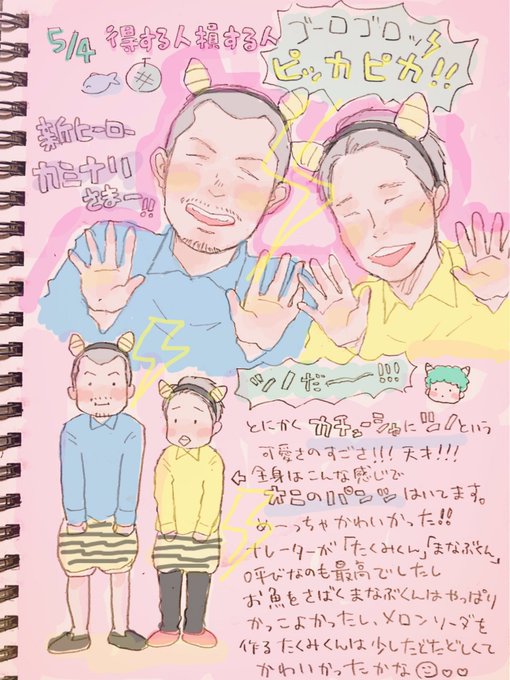 5/4 得する人損する人
ゴーロゴロッ
ピッカピカ!!
新ヒーロー
カミナリ
さまー!!
ツノだー!!!
とにかくカチューシャにツノという
可愛さのすごさ!!!天才!!!
←全身はこんな感じで
オニのパンツはいてます。
めーっちゃかわいかった!!
ナレーターが「たくみくん」「まなぶくん」
呼びなのも最高でしたし
お魚をさばくまなぶくんはやっぱり
かっこよかったし、メロンソーダを
作るたくみくんは少したどたどしくて
かわいかったかな